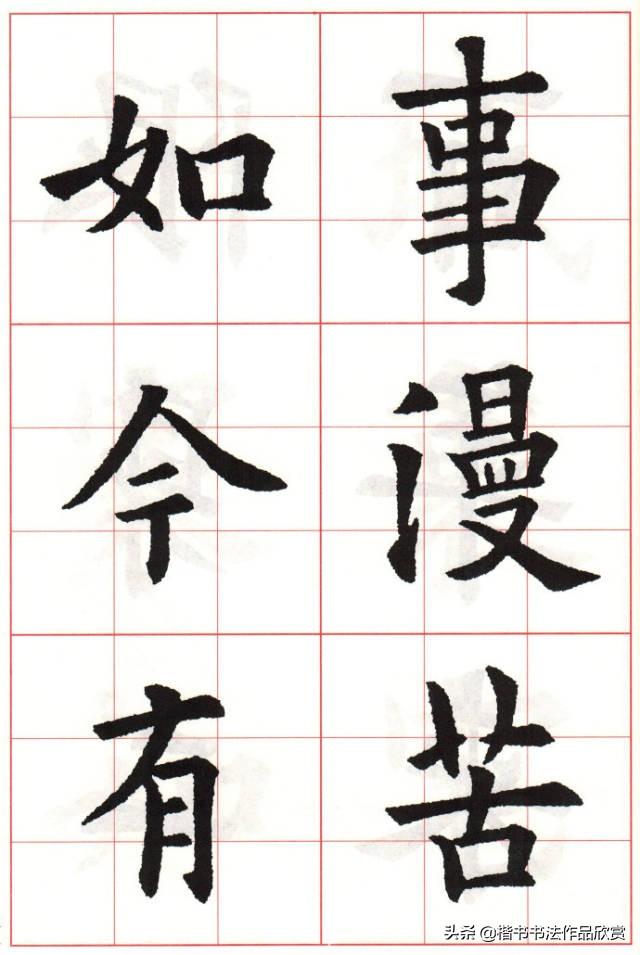 事漫苦
如今有
头条 @楷书书法作品欣赏